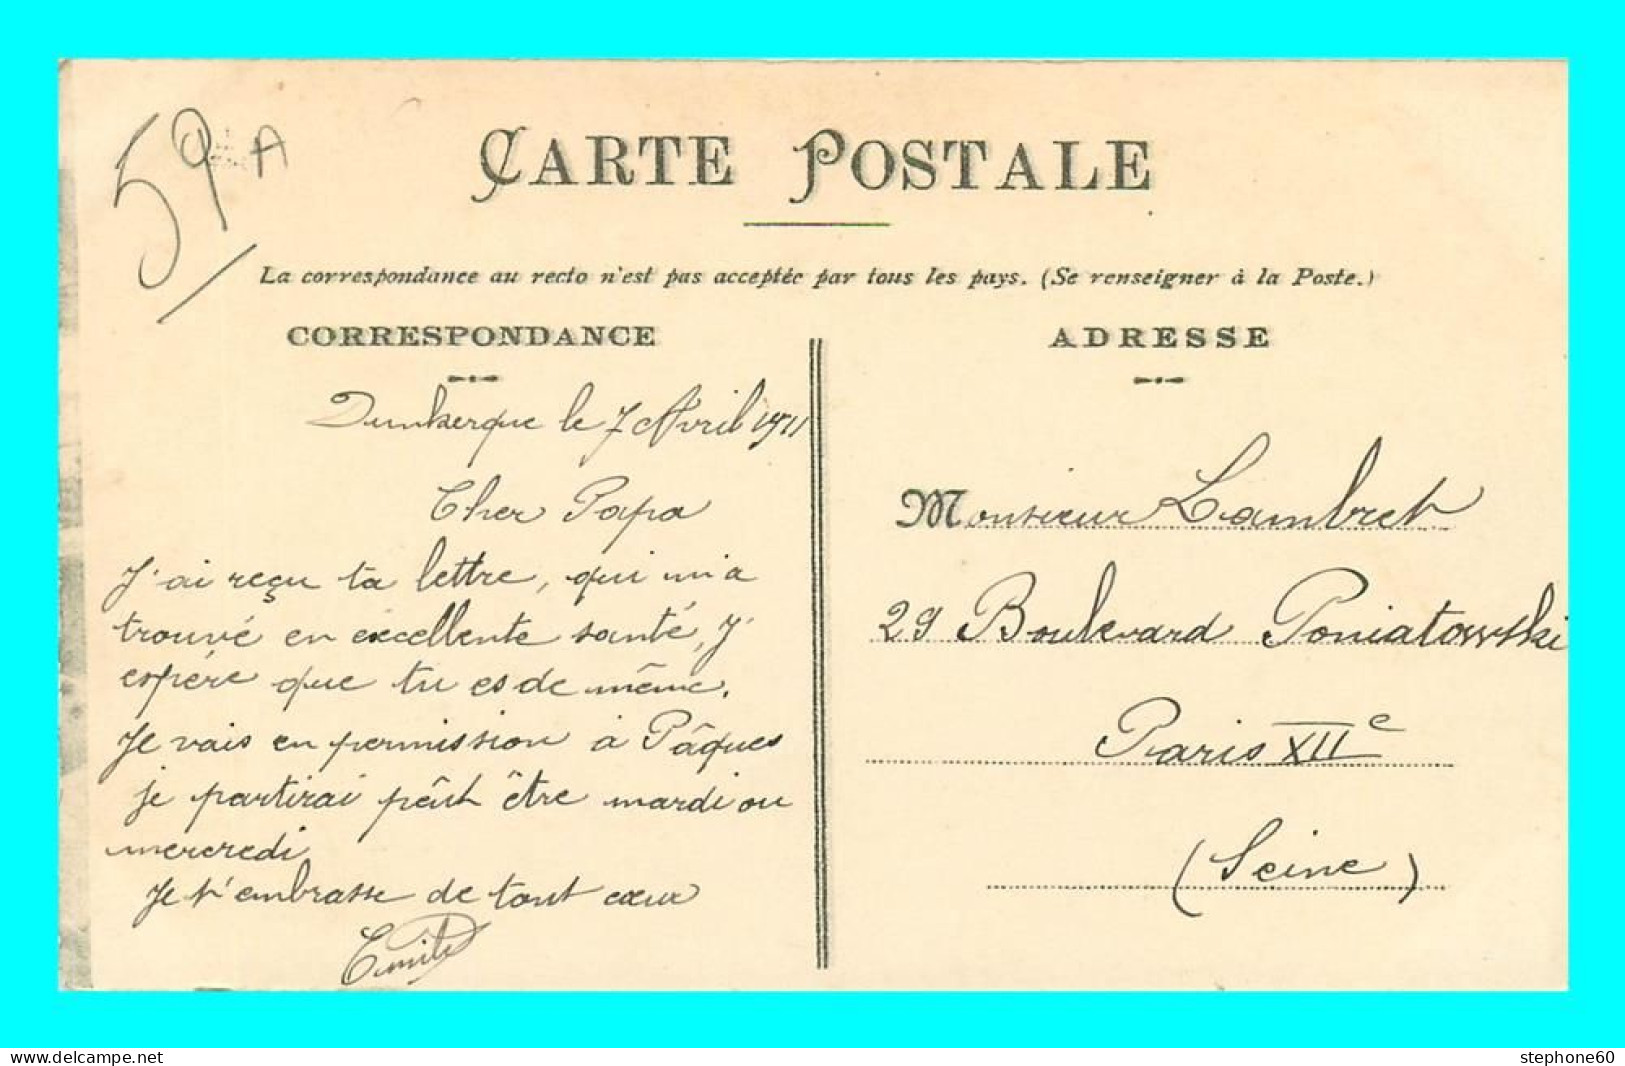 59 A
CARTE POSTALE
La correspondance au recto n'est pas acceptée par tous les pays. (Se renseigner à la Poste.)
CORRESPONDANCE
Dunkerque le 7 Avril 1911
Cher Papa
J'ai reçu ta lettre, qui m'a
trouvé en excellente santé, J'
espére que tu es de même.
Je vais en permission à Pâques
je partirai pêut être mardi ou
mercredi
Je t'embrasse de tout cœur
Emile
ADRESSE
Monsieur Lambret
29 Boulevard Poniatowski
Paris XIIe
(Seine)
delcampe.net
stephone60